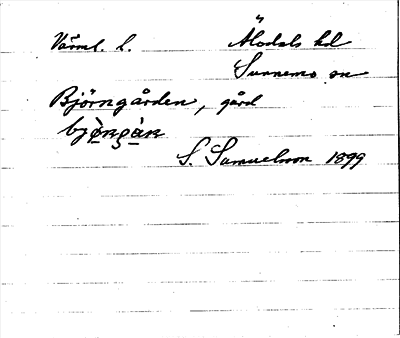 Värml. l. Älvdals hd
Sunnemo sn
Björngården, gård
S. Samuelsson 1899